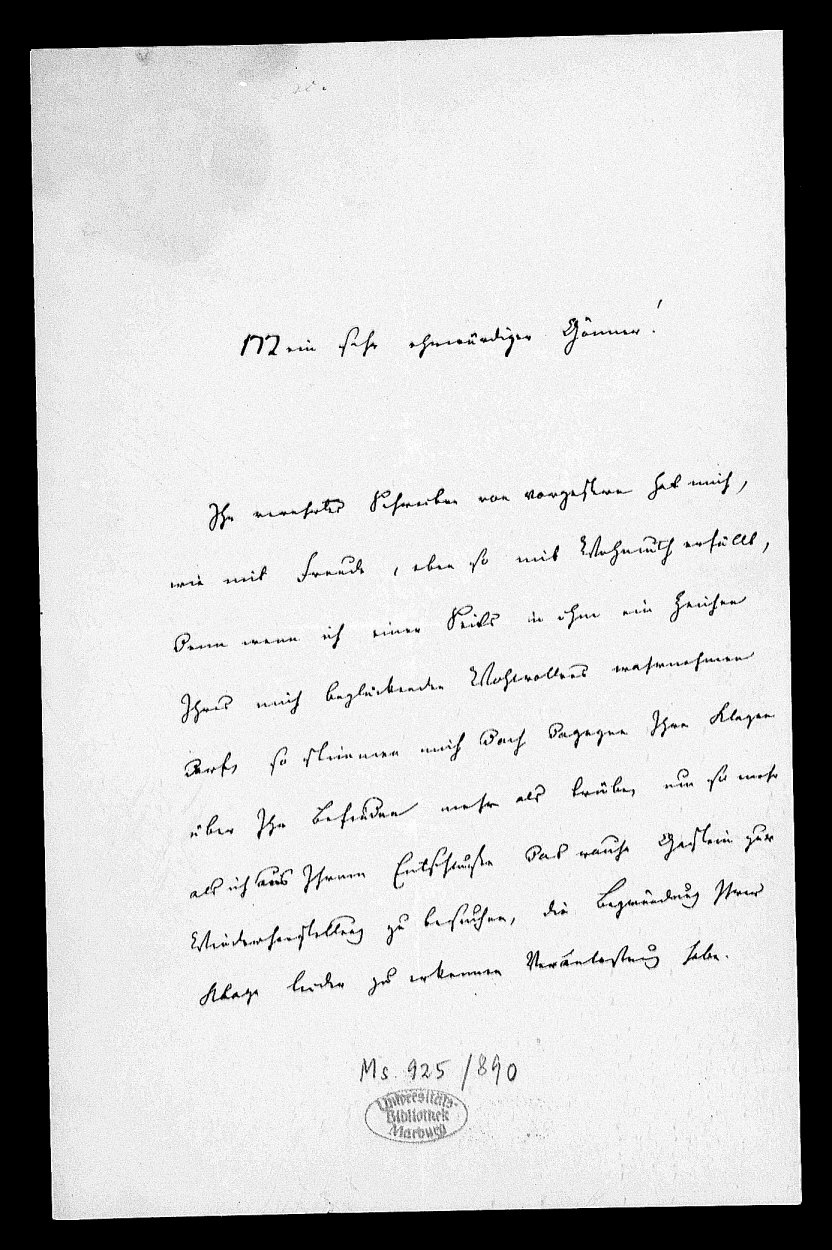 Mein sehr ehrwürdiger Gönner!
Ihr verehrtes Schreiben von vorgestern hat mich,
wie mit Freude, eben so mit Wehmuth erfüllt,
Denn wenn ich einer Seits in ihm ein Zeichen
Ihres mich beglückenden Wohlwollens wahrnehmen
darf, so stimmen mich doch dagegen Ihre Klagen
über Ihr Befinden mehr als trübe, um so mehr
als ich aus Ihrem Entschlusse das rauhe Gastein zur
Wiederherstellung zu besuchen, die Begründung Ihrer
Klage leider zu erkennen Veranlassung habe.
Ms. 925/890
Universitäts-
Bibliothek
Marburg